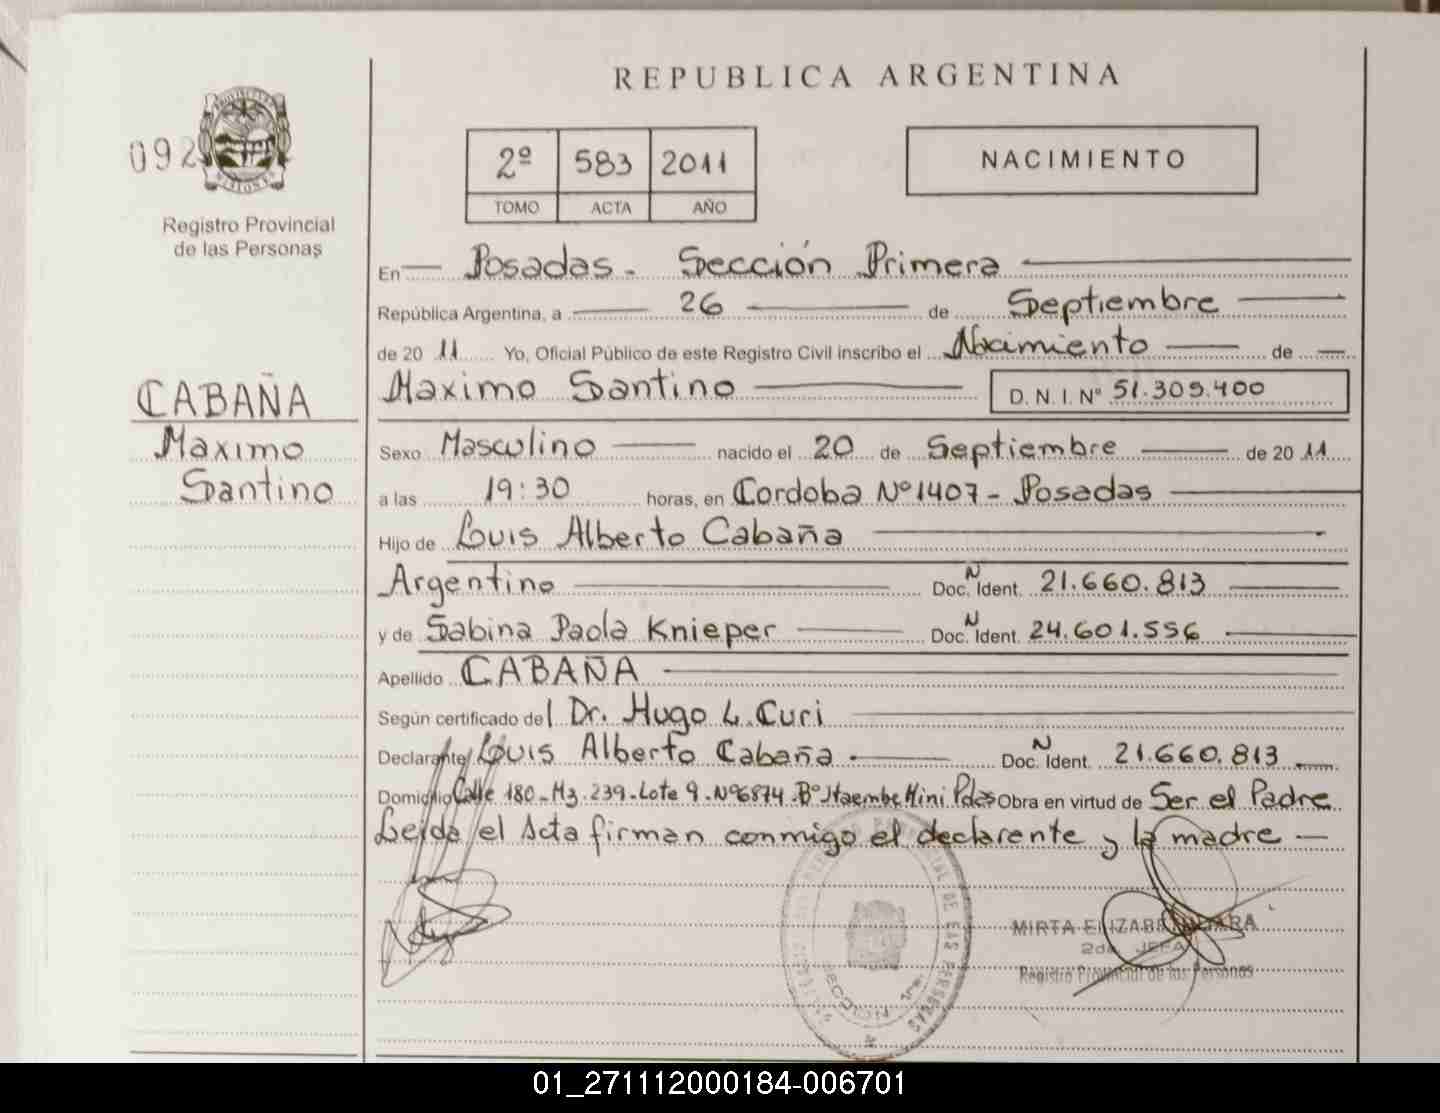 REPUBLICA ARGENTINA
092
Registro Provincial
de las Personas
2º 583 2011
TOMO ACTA AÑO
NACIMIENTO
En Posadas. Sección Primera
República Argentina, a 26 de Septiembre
de 20 11 Yo, Oficial Público de este Registro Civil inscribo el Nacimiento de
CABAÑA
Maximo
Santino
Maximo Santino D. N. I. Nº 51.309.400
Sexo Masculino nacido el 20 de Septiembre de 20 11
a las 19:30 horas, en Cordoba Nº 1407 - Posadas
Hijo de Luis Alberto Cabaña
Argentino Doc. Ident. N 21.660.813
y de Sabina Paola Knieper Doc. Ident. N 24.601.556
Apellido CABAÑA
Según certificado del Dr. Hugo L. Curi
Declarante Luis Alberto Cabaña Doc. Ident. N 21.660.813
Domicilio Calle 180 - Mz. 239 - Lote 9 - Nº 6874 - Bº Itaembe Mini Pdas Obra en virtud de Ser el Padre
Leida el Acta firman conmigo el declarente y la madre
MIRTA ELIZABETH
2da. JEFA
Registro Provincial de las Personas
01_271112000184-006701